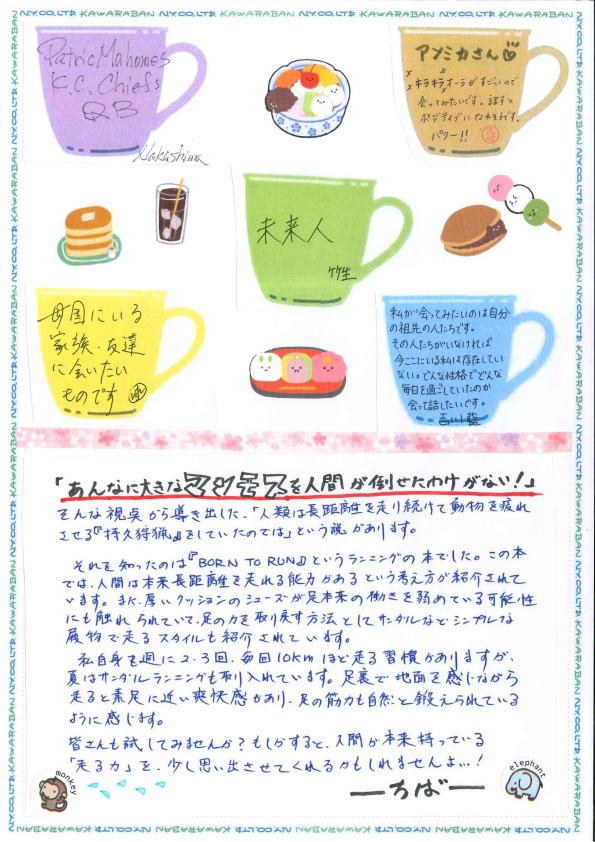 NYCO.,LTD. KAWARABAN NYCO.,LTD. KAWARABAN NYCO.,LTD. KAWARABAN NYCO.,LTD. KAWARABAN
Patric Mahomes
K.C. Chiefs
QB
Nakashima
アンミカさん
キラキラオーラがすごいので
会ってみたいです。話すと
ポジティブになれそうです。
パワー!!
未来人
竹生
母国にいる
家族・友達
に会いたい
ものです
私が会ってみたいのは自分
の祖先の人たちです。
その人たちがいなければ
今ここにいる私は存在してい
ない。どんな性格でどんな
毎日を過ごしていたのか
会って話したいです。
吉川 藍
「あんなに大きなマンモスを人間が倒せたわけがない!」
そんな視点から導き出した、「人類は長距離を走り続けて動物を疲れ
させる『持久狩猟』をしていたのでは」という説があります。
それを知ったのは『BORN TO RUN』というランニングの本でした。この本
では、人間は本来長距離を走れる能力があるという考え方が紹介されて
います。また、厚いクッションのシューズが足本来の働きを弱めている可能性
にも触れられていて、足の力を取り戻す方法としてサンダルなどシンプルな
履物で走るスタイルも紹介されています。
私自身も週に2、3回、毎回10kmほど走る習慣がありますが、
夏はサンダルランニングも取り入れています。足裏で地面を感じながら
走ると素足に近い爽快感があり、足の筋力も自然と鍛えられている
ように感じます。
皆さんも試してみませんか?もしかすると、人間が本来持っている
「走る力」を、少し思い出させてくれるかもしれませんよ…!
monkey
ーちばー
elephant